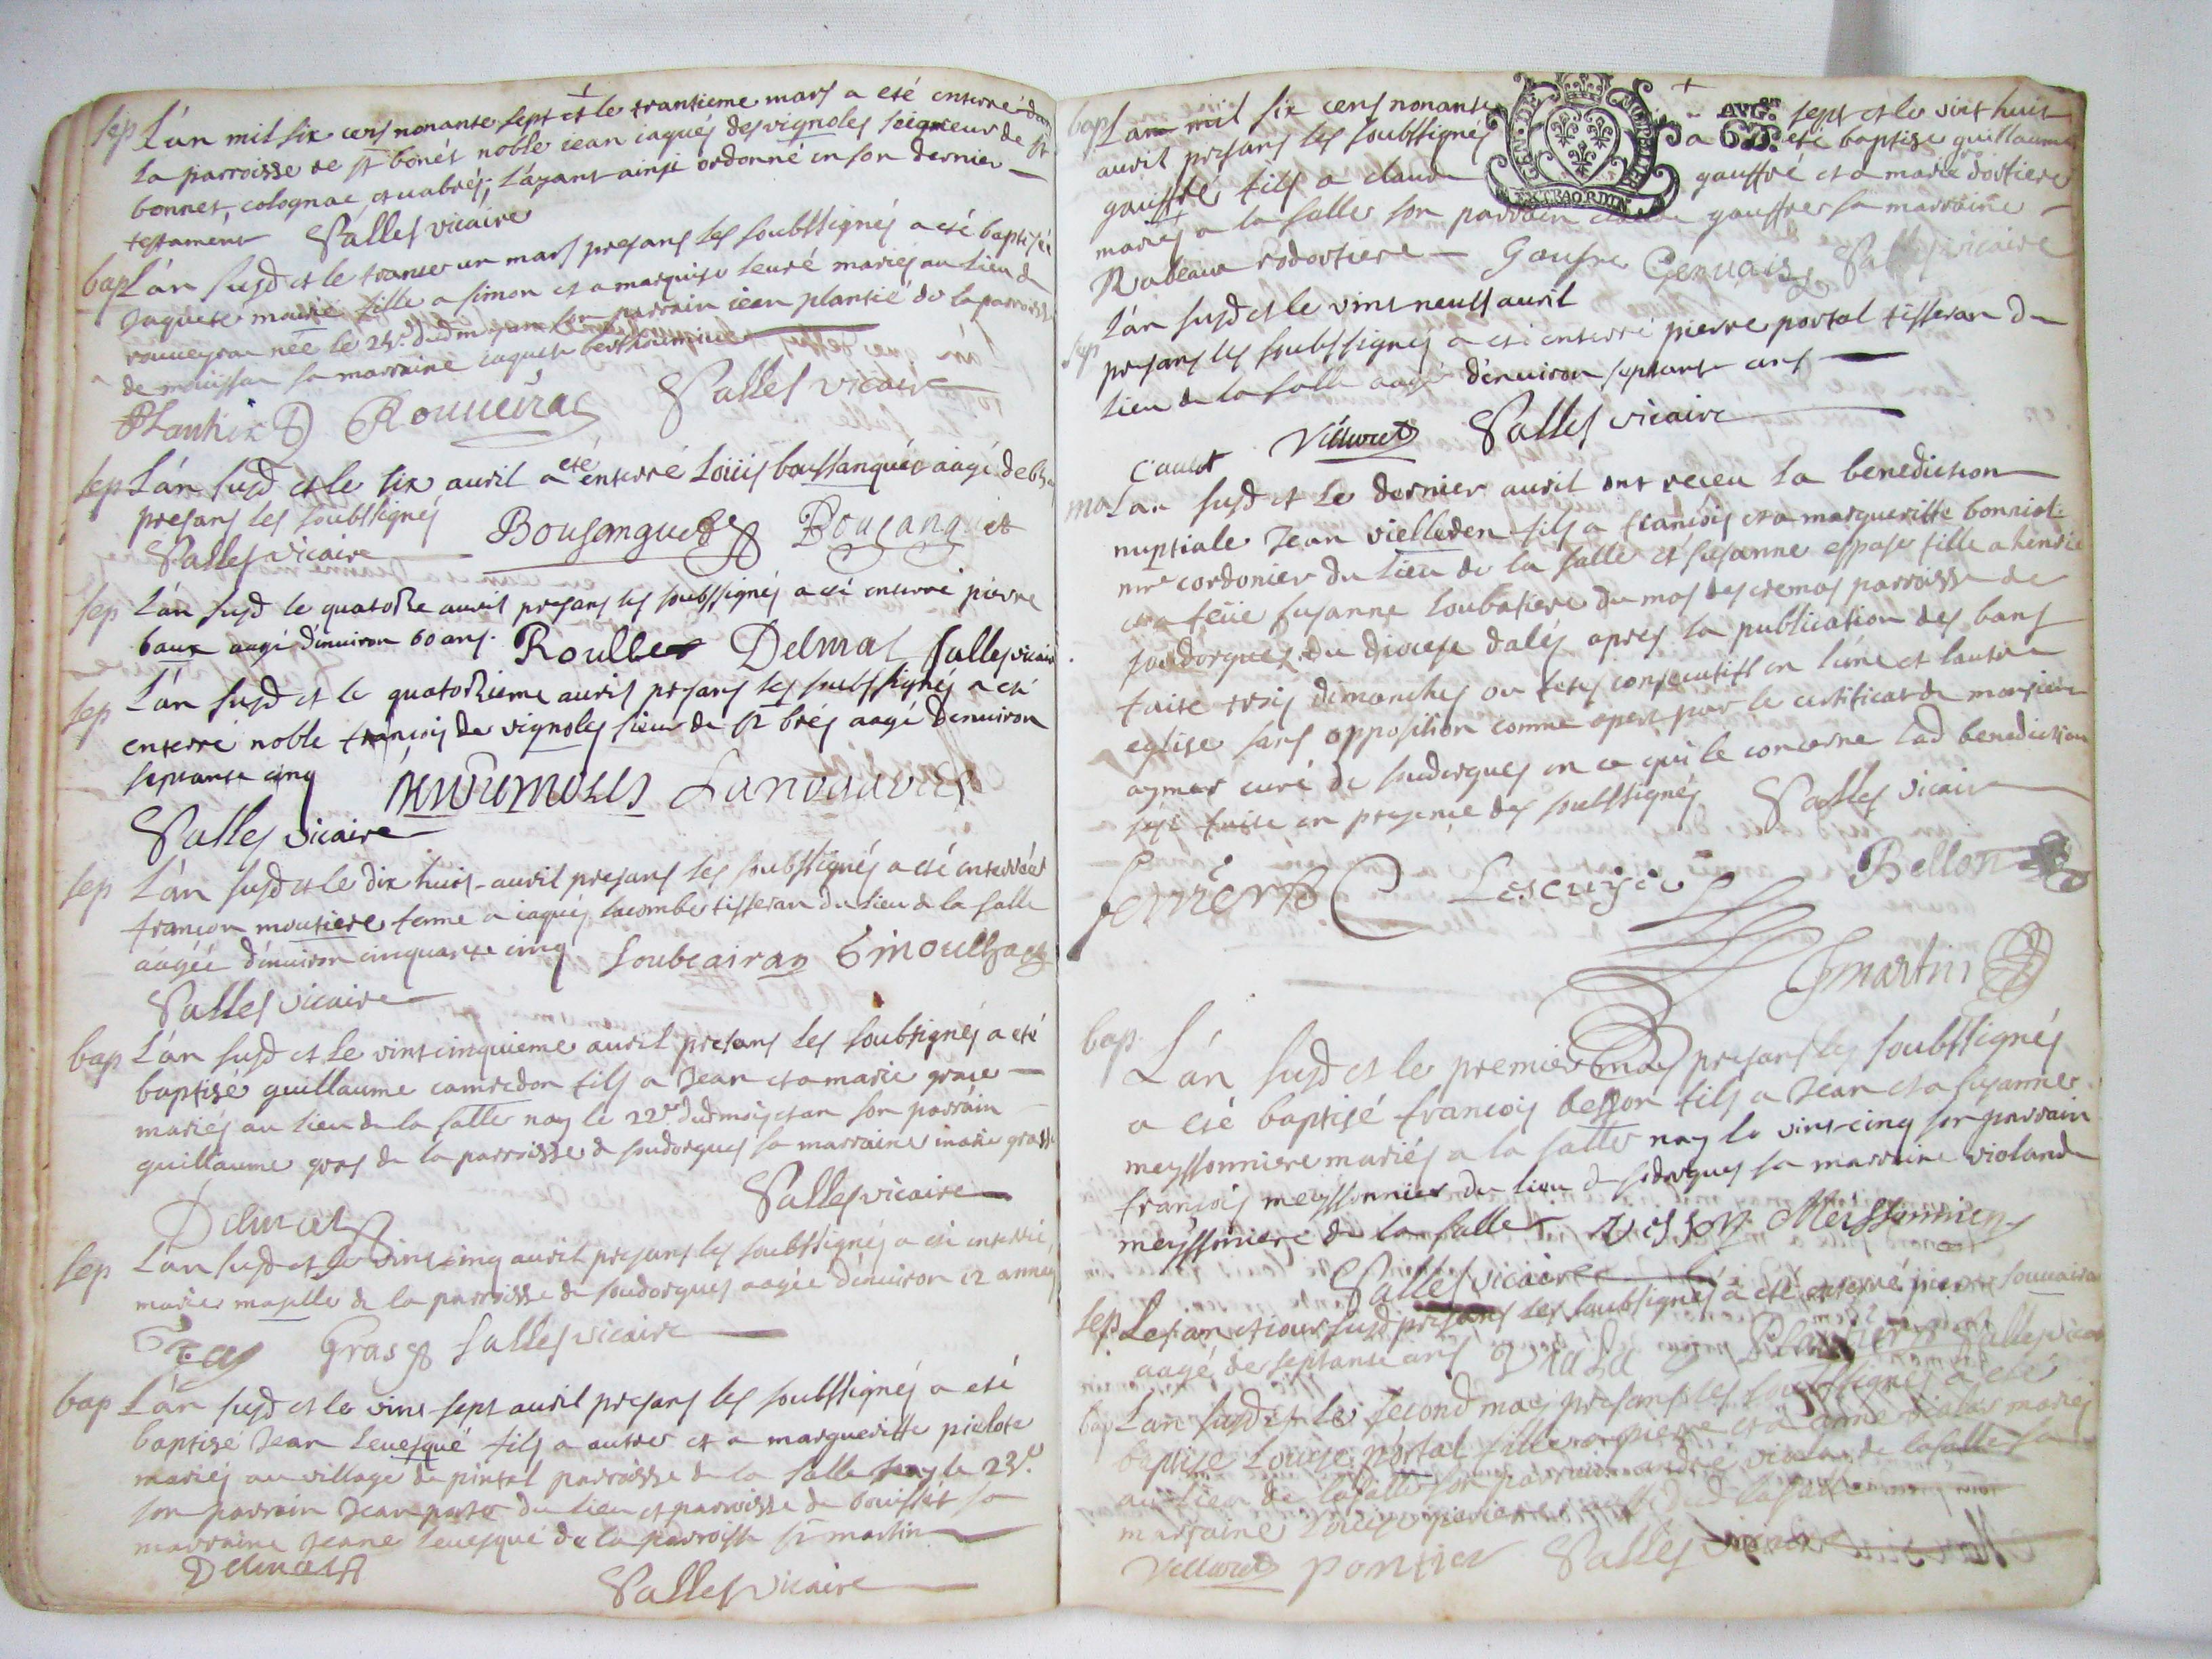 sep L'án mil six cens nonante sept et le trantieme mars a eté enterré dans
la parroisse de St bonés noble iean iaques desvignoles seigneur de St
bonnet, colognac, et vabres; l'ayant ainsi ordonné en son dernier
testament Salles vicaire
bap L'án susd et le trante un mars presans les soubssignés a eté baptisée
Jaquete marie fille a simon et a marquise leuré mariés au lieu de
née le 24e dud m et an son parrain iean plantié de la parroisse
de sa marraine iaquete
Plantier Rouueirac Salles vicaire
sep L'án susd et le six auril a eté enterré Loüis boussanquet aagé de
presans les soubssignés
Salles vicaire Bousanguet Bousanguet
sep L'án susd le quatorze auril presans les soubssignés a eté enterré pierre
baux aagé d'enuiron 60 ans. Delmas Salles vicaire
sep L'án susd et le quatorzieme auril presans les soubssignés a eté
enterré noble françois de vignoles sieur de St brés aagé denuiron
septante cinq
Salles vicaire
sep L'án susd et le dix huit auril presans les soubssignés a eté enterrée
françon moutiere feme a iaques lacombe tisseran du lieu de la salle
aagée d'enuiron cinquante cinq Soubeairan
Salles vicaire
bap L'án susd et Le vint cinquieme auril presans les soubsignés a eté
baptisé guillaume camredon fils a Jean et a marie grase
mariés au lieu de la salle nay le 22e dud mois et an son parrain
guillaume gras de la parroisse de soudorgues sa marraine marie grasse
Delmas Salles vicaire
sep L'án susd et le vint cinq auril presans les soubssignés a eté enterrée
marie maselle de la parroisse de soudorgues aagée d'enuiron 12 années
Gras Salles vicaire
bap L'án susd et le vint sept auril presans les soubssignés a eté
baptisé Jean leuesqué fils a autre et a margueritte pielote
mariés au village de pintal parroisse de la salle nay le 23e
son parrain Jean du lieu et parroisse de sa
marraine Jeane leuesque de la parroisse St martin
Delmas Salles vicaire
bap L'an mil six cens nonante sept et le vint huit
auril presans les soubssignés a eté baptisé guillaume
gauffré fils a claude gauffré et a marie
GEN. DE MONTPELLIER
EXTRAORDIN.
AVG.
mariés a la salle son parrain gauffre sa marraine
Gaufre Gervais Salles vicaire
sep L'án susd et le vint neuff auril
presans les soubssignés a eté enterré pierre portal tisseran du
lieu de la salle aagé d'enuiron septante ans
Villaret Salles vicaire
ma L'an susd et le dernier auril ont receu la benediction
nuptiale Jean vielleden fils a françois et a margueritte bonniol
mre cordonier du lieu de la salle et susanne fille a henric
et a feüe susanne loubatiere du mas des cremas parroisse de
soudorgues du diocese d'alés apres la publication des bans
faite trois dimanches ou fetes consecutifs en l'une et lautre
eglise sans opposition comme apert par le certificat de monsieur
aymar curé de soudorgues en ce qui le concerne lad benediction
faite en presence des soubssignés Salles vicaire
Bellon
martin
bap L'án susd et le premier may presans les soubssignés
a eté baptisé françois besson fils a Jean et a susanne
meyssonniere mariés a la salle nay le vint cinq son parrain
françois meyssonnier du lieu de sa marraine violande
meyssonniere de la salle Meissonnier
Salles vicaire
sep Les an et iour susd presans les soubsignés a eté enterré pierre
aagé de septante ans Plantier Salles vicaire
bap L'an susd et le second may presans les soubssignés a eté
baptise Louise portal fille a pierre et a anne mariés
au lieu de lasalle son parrain andré de lasalle sa
marraine Louise
Villaret pontier Salles vicaire